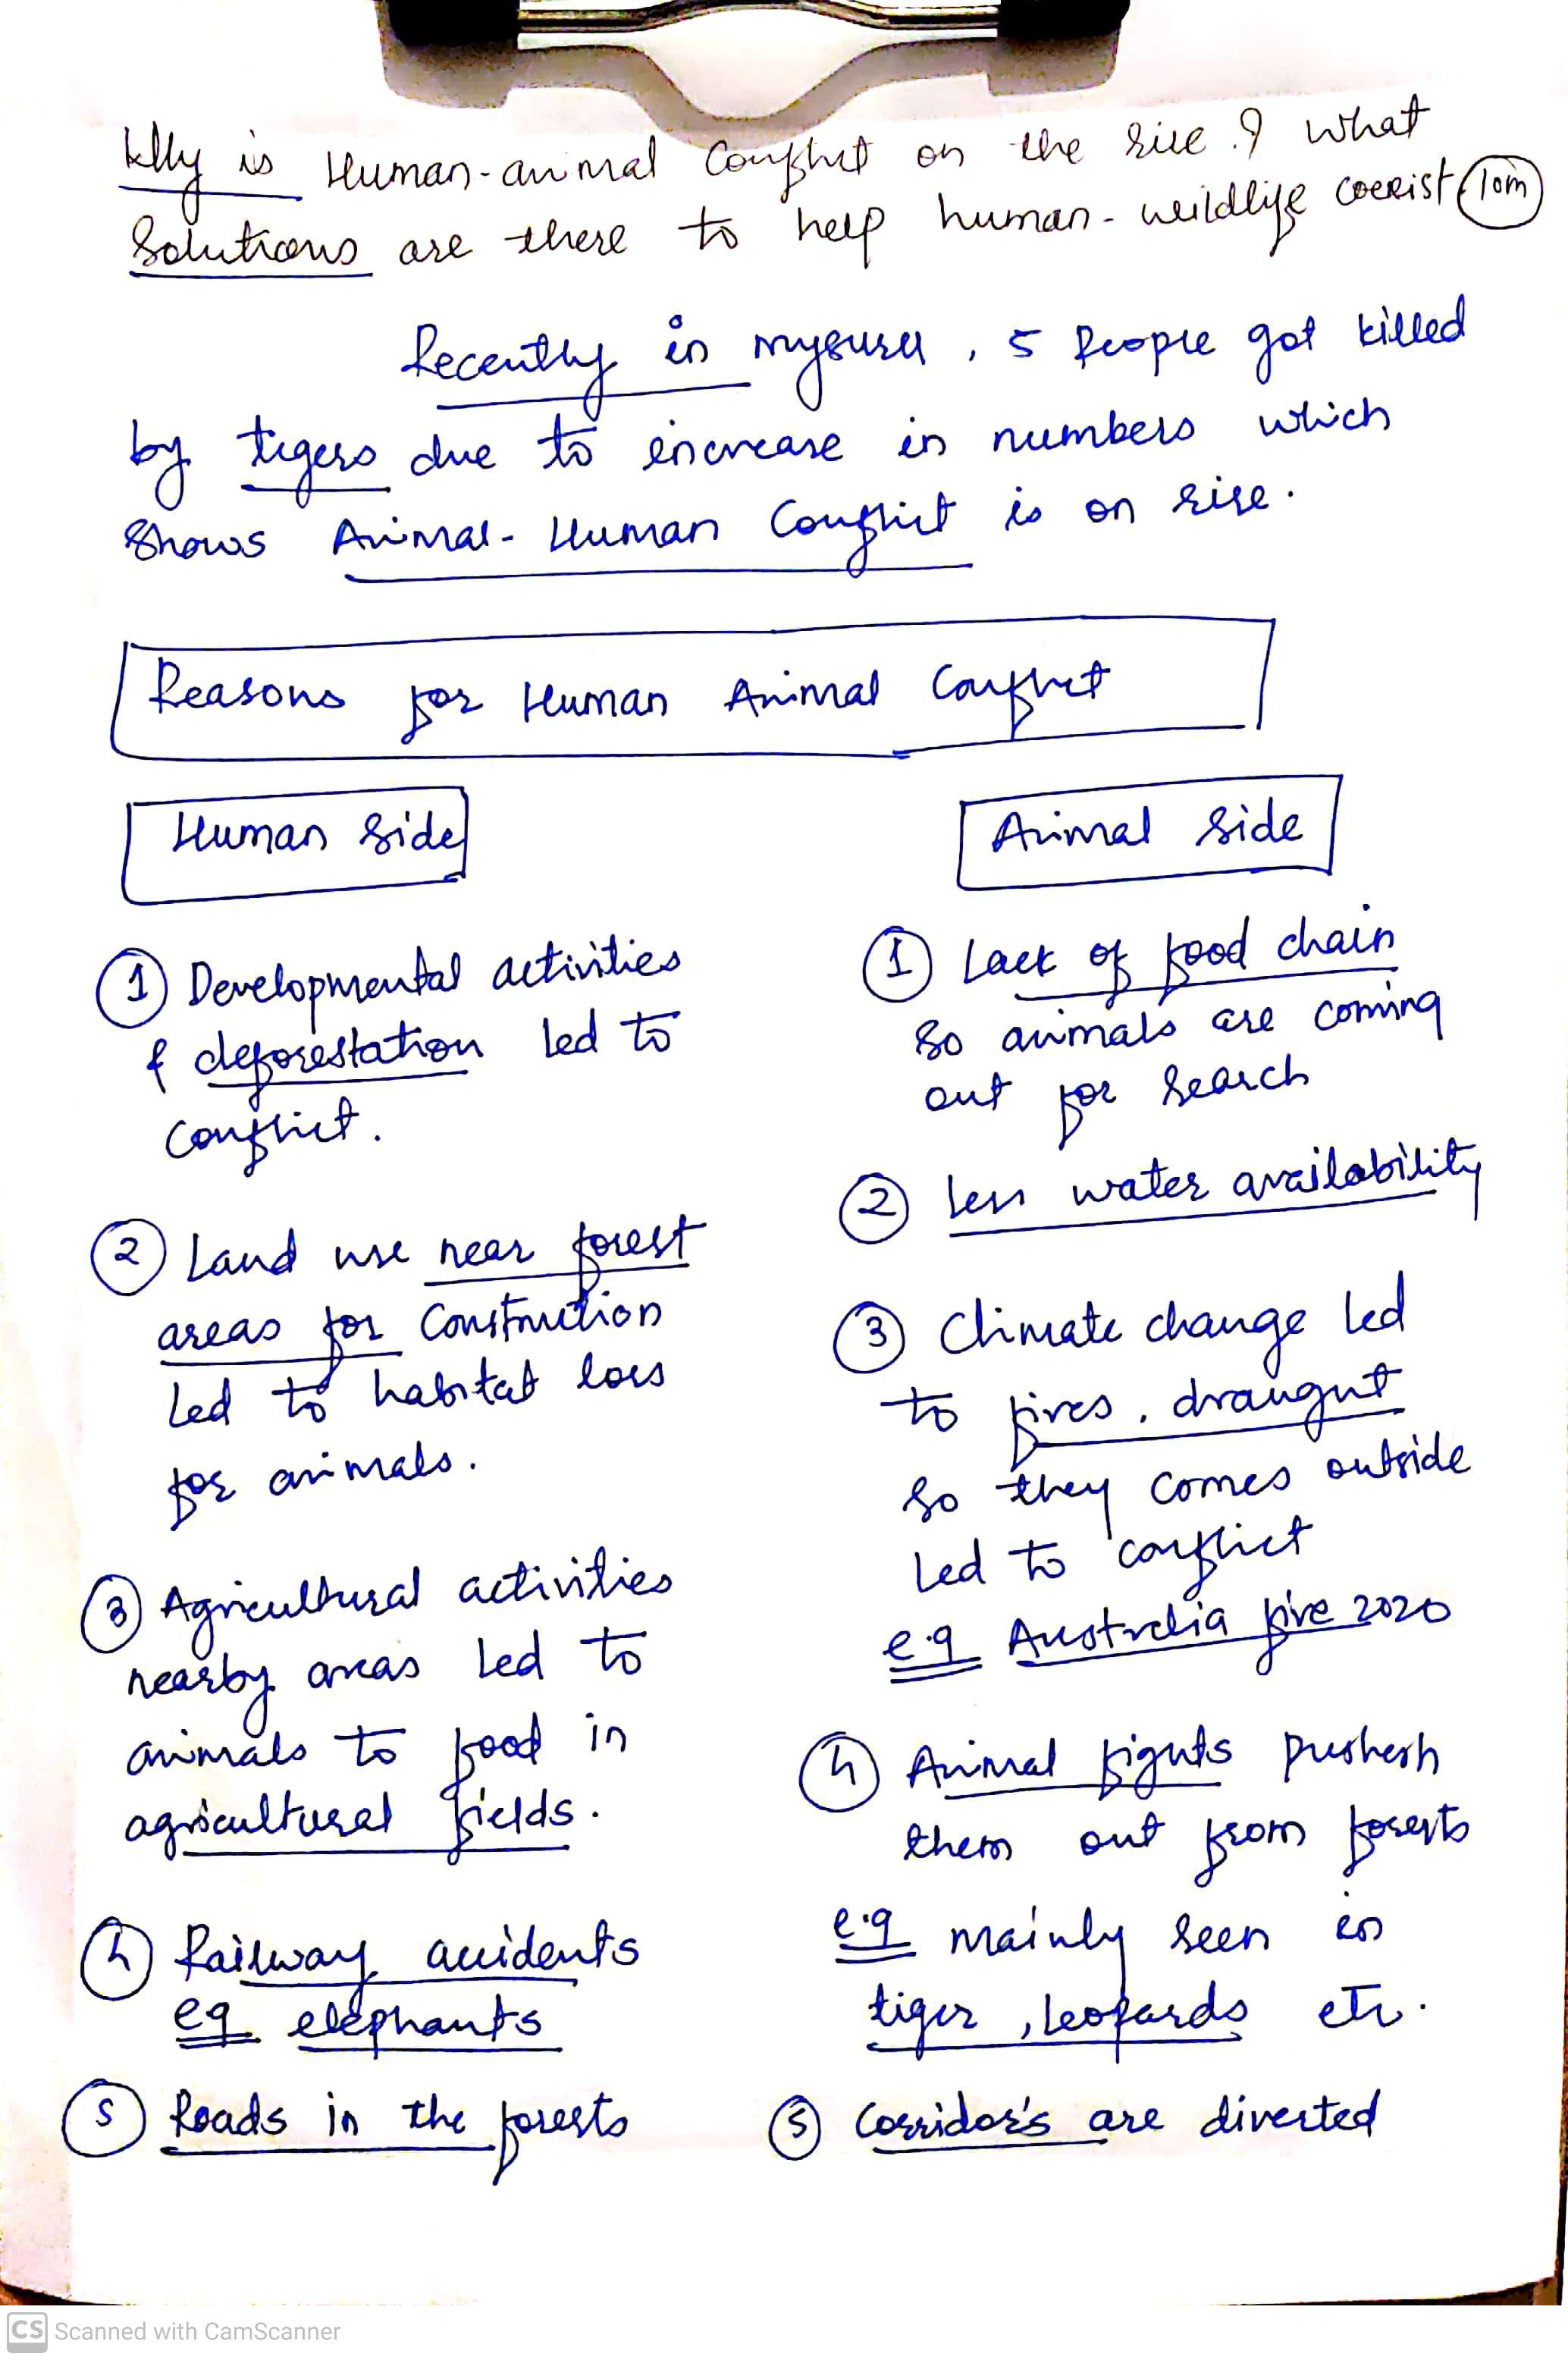 Why is Human-animal Conflict on the rise? What
Solutions are there to help human-wildlife coexist. 10m
Recently in mysuru, 5 People got killed
by tigers due to increase in numbers which
Shows Animal-Human Conflict is on rise.
Reasons for Human Animal Conflict
Human Side
① Developmental activities
& deforestation led to
conflict.
② Land use near forest
areas for Construction
led to habitat loss
for animals.
③ Agricultural activities
nearby areas led to
animals to food in
agricultural fields.
④ Railway accidents
eg elephants
⑤ Roads in the forests
Animal Side
① Lack of food chain
So animals are coming
out for Search
② less water availability
③ Climate change led
to fires, draught
So they comes outside
led to conflict
e.g Australia fire 2020
④ Animal fights pushesh
them out from forests
e.g mainly seen in
tiger, leopards etc.
⑤ Corridor's are diverted
CS Scanned with CamScanner